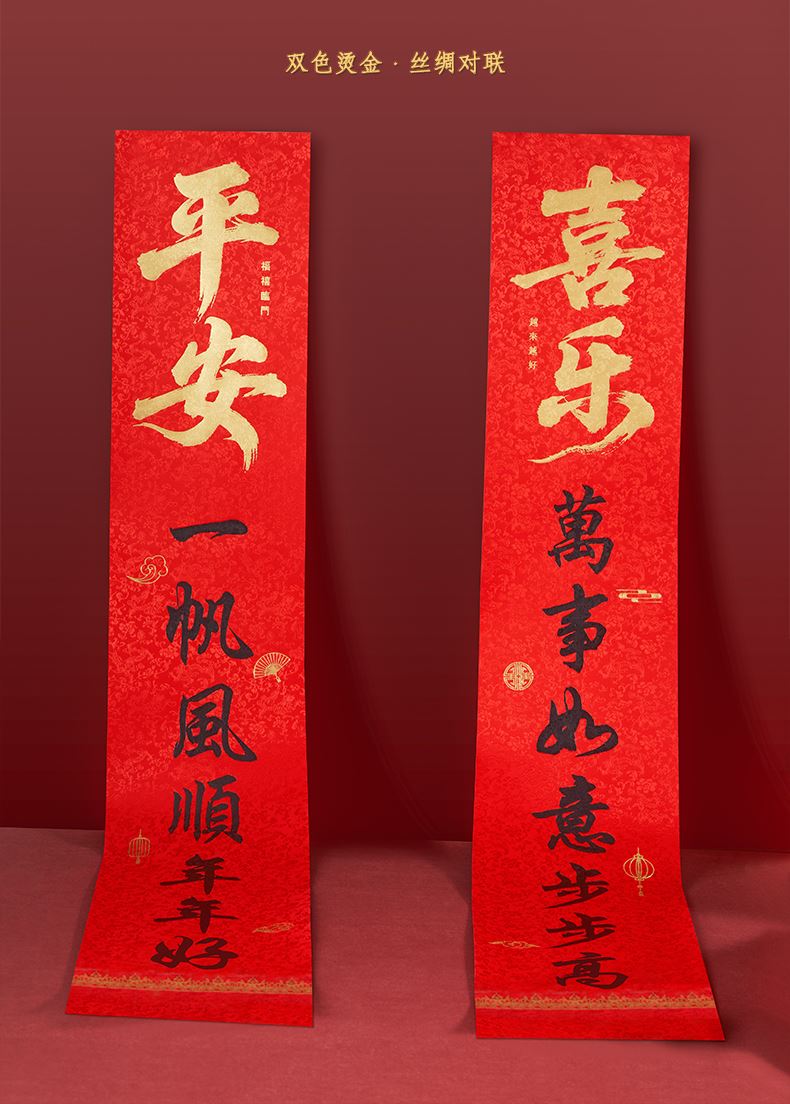 双色烫金·丝绸对联
平安
福禧臨門
一帆風順年年好
喜乐
越來越好
萬事如意步步高